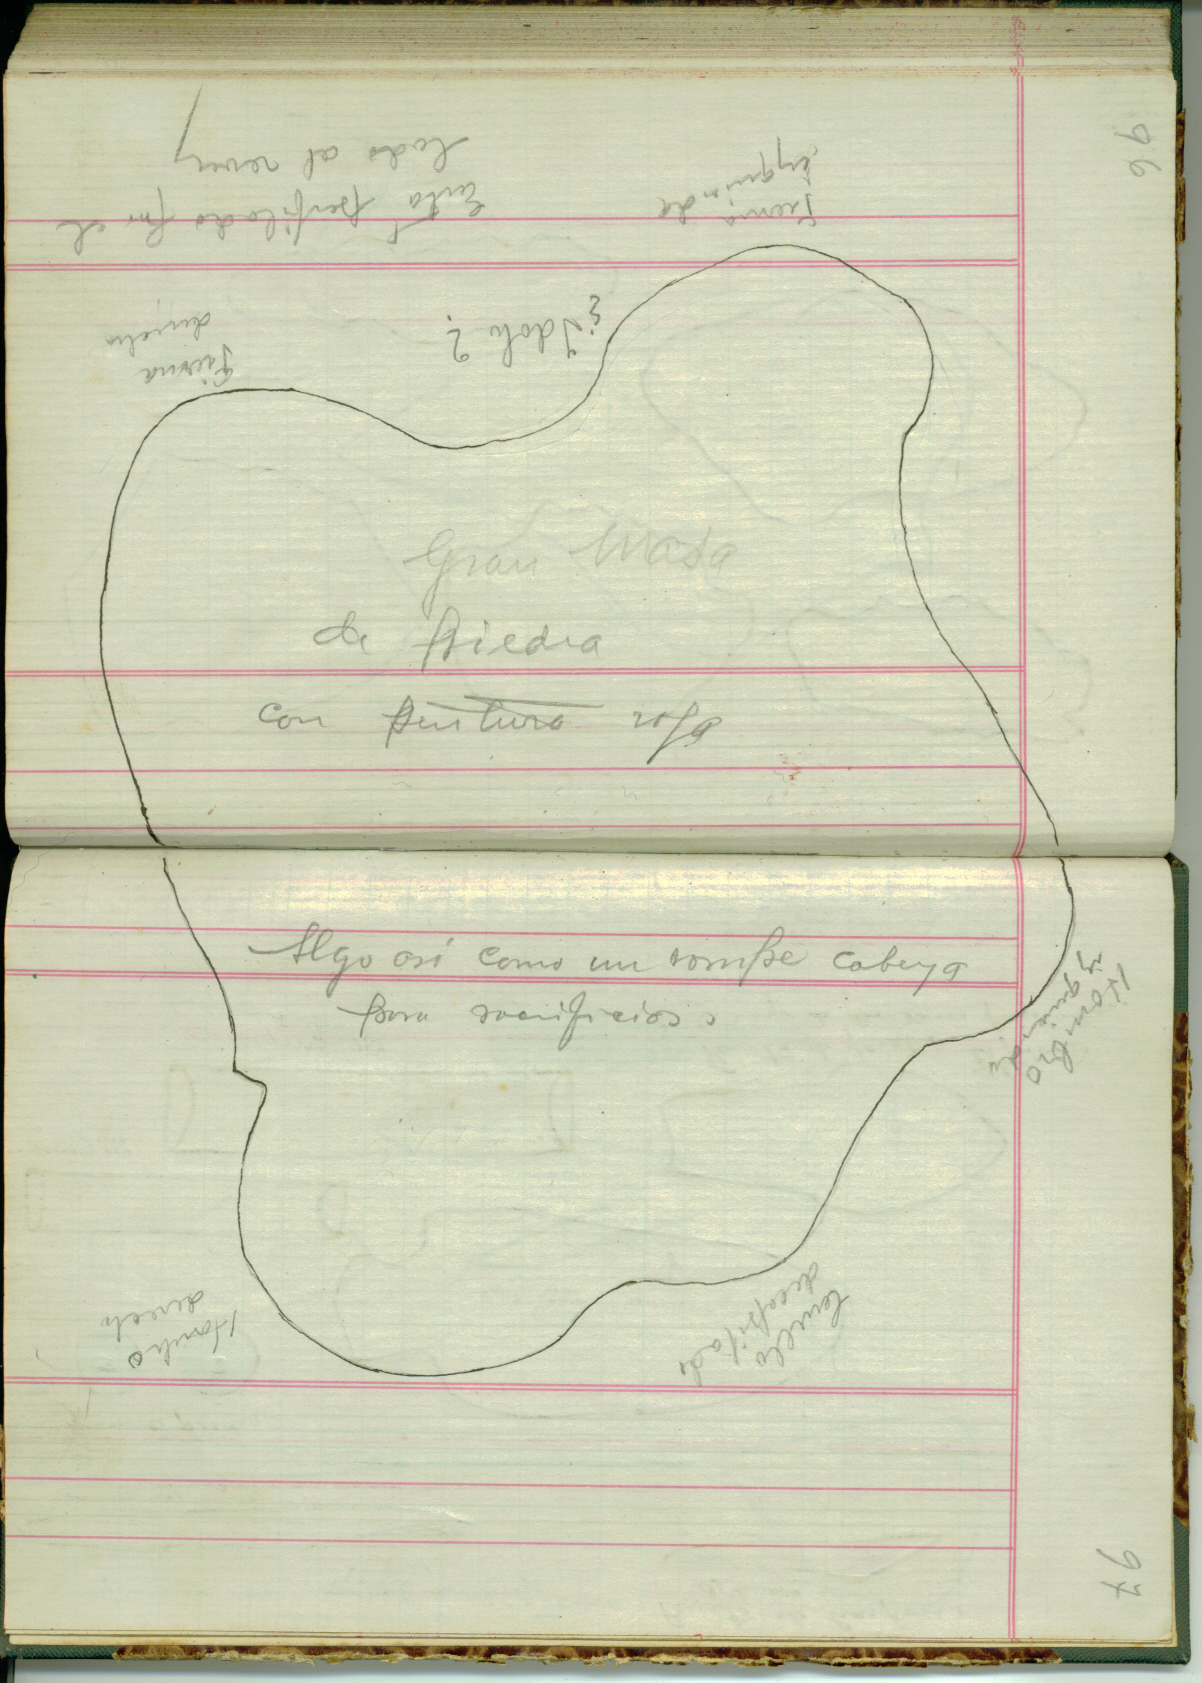 96
Esta perfilado por el
lado al reves
Pierna
izquierda
Pierna
derecha
¿Idolo?
Gran masa
de piedra
con pintura roja
Algo asi como un rompe cabeza
para sacrificios
Hombro
izquierdo
Hombro
derecho
Cuello
decapitado
97